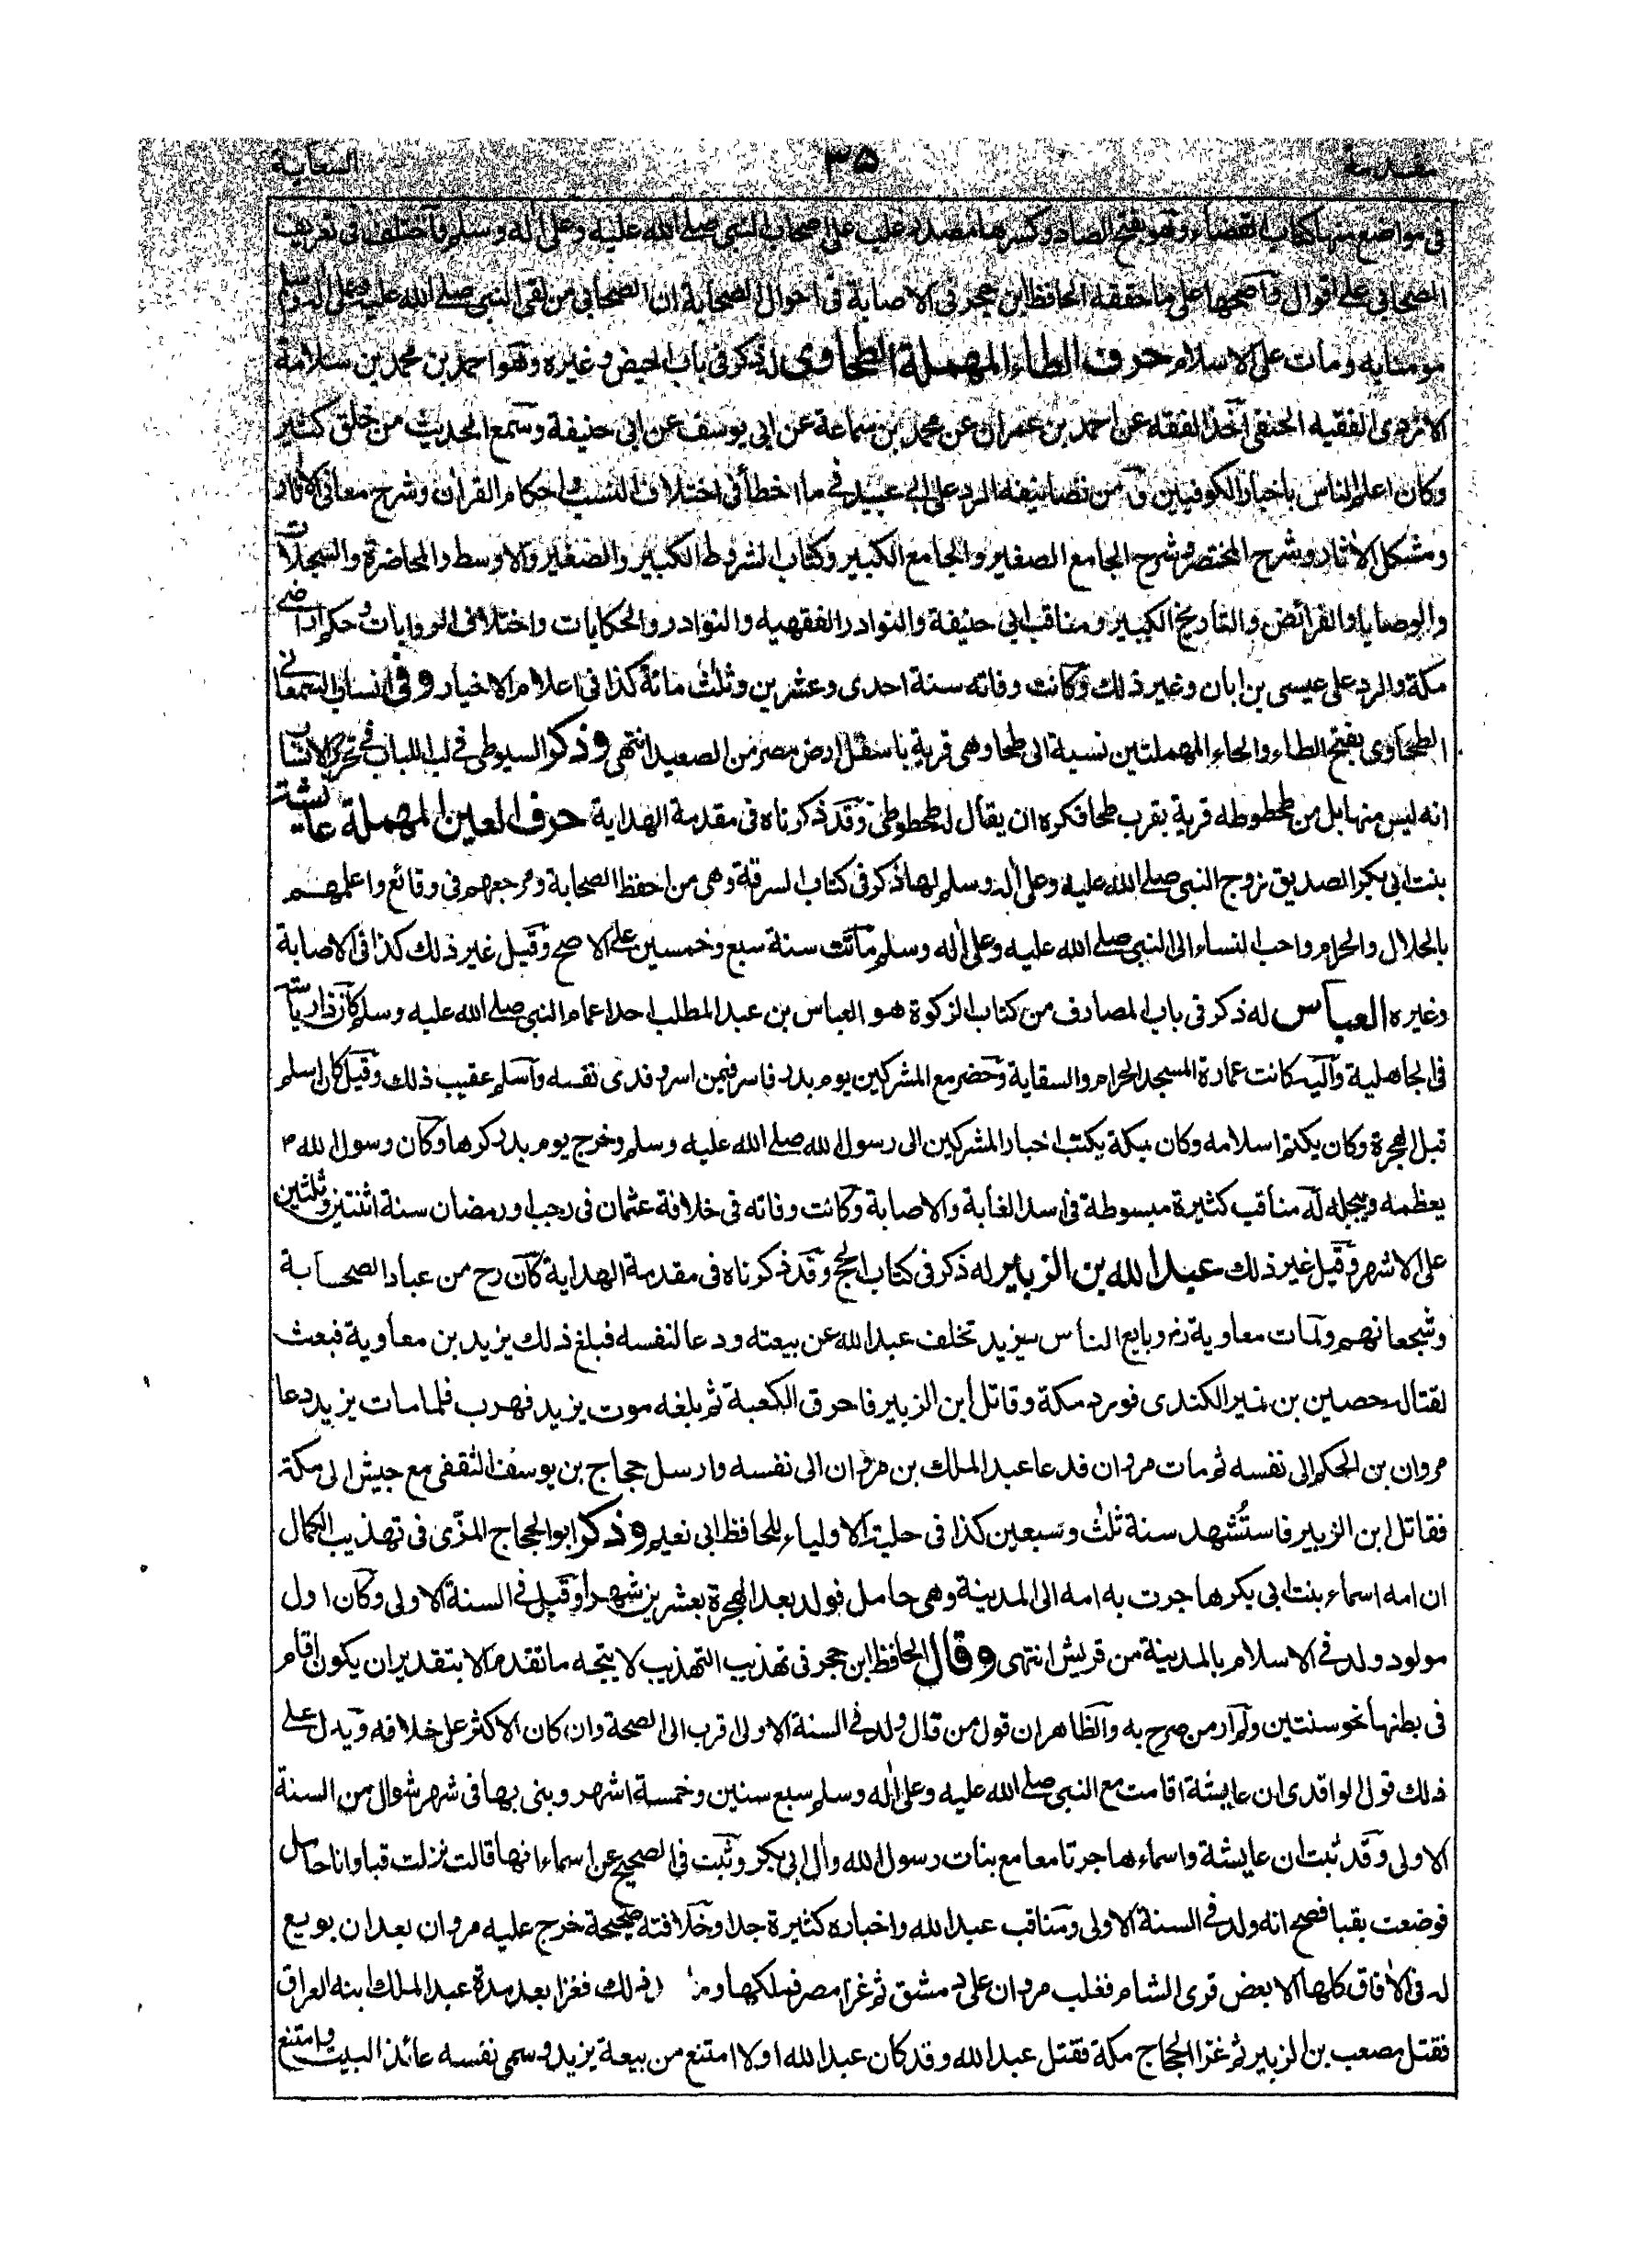 مقدمة ٣٥ السعاية
فى مواضع منها كتاب القضاء وهو بفتح الصاد وكسرها مصدر غلب على اصحاب النبى صلے الله عليه وعلى اله وسلم واختلف فى تعريف
الصحابى على اقوال واصحها على ما حققه الحافظ ابن حجر فى الاصابة فى احوال الصحابة ان الصحابى من لقى النبى صلے الله عليه وعلى اله وسلم
مومنا به ومات على الاسلام حرف الطاء المهملة الطحاوى له ذكر فى باب الحيض وغيره وهو احمد بن محمد بن سلامة
الازدى الفقيه الحنفى اخذ الفقه عن احمد بن عمران عن محمد بن سماعة عن ابى يوسف عن ابى حنيفة وسمع الحديث من خلق كثير
وكان اعلم الناس باخبار الكوفيين ومن تصانيفه الرد على ابى عبيد فے ما اخطأ فى اختلاف النسب واحكام القران وشرح معانى الاثار
ومشكل الاثار وشرح المختصر وشرح الجامع الصغير والجامع الكبير وكتاب الشروط الكبير والصغير والاوسط والمحاضرة والسجلات
والوصايا والفرائض والتاريخ الكبير ومناقب ابى حنيفة والنوادر الفقهيه والنوادر والحكايات واختلاف الروايات وحكم اراضے
مكة والرد على عيسى بن ابان وغير ذلك وكانت وفاته سنة احدى وعشرين وثلث مائة كذا فى اعلام الاخيار وفى انساب السمعانى
الطحاوى بفتح الطاء والحاء المهملتين نسبة الى طحا وهى قرية باسفل ارض مصر من الصعيد انتهى وذكر السيوطى فے لب اللباب فے تحرير الانساب
انه ليس منها بل من طحطوطه قرية بقرب طحا فكره ان يقال له طحطوطى وقد ذكرناه فى مقدمة الهداية حرف العين المهملة عايشة
بنت ابى بكر الصديق زوج النبى صلے الله عليه وعلى اله وسلم لها ذكر فى كتاب السرقة وهى من احفظ الصحابة ومرجعهم فى وقائع واعلمهم
بالحلال والحرام واحب النساء الى النبى صلے الله عليه وعلى اله وسلم ماتت سنة سبع وخمسين على الاصح وقيل غير ذلك كذا فى الاصابة
وغيره العباس له ذكر فى باب المصارف من كتاب الزكوة هو العباس بن عبد المطلب احد اعمام النبى صلے الله عليه وسلم كان ذا رياسة
فى الجاهلية واليه كانت عمارة المسجد الحرام والسقاية وحضر مع المشركين يوم بدر فاسر فيمن اسر وفدى نفسه واسلم عقيب ذلك وقيل كان اسلم
قبل الهجرة وكان يكتم اسلامه وكان بمكة يكتب اخبار المشركين الى رسول الله صلے الله عليه وسلم وخرج يوم بدر كرها وكان رسول الله م
يعظمه ويجله له مناقب كثيرة مبسوطة فى اسد الغابة والاصابة وكانت وفاته فى خلافة عثمان فى رجب او رمضان سنة اثنتين وثلثين
على الاشهر وقيل غير ذلك عبد الله بن الزبير له ذكر فى كتاب الحج وقد ذكرناه فى مقدمة الهداية كان رح من عباد الصحابة
وشجعانهم ولمات معاوية رض وبايع الناس بيزيد تخلف عبد الله عن بيعته ودعا لنفسه فبلغ ذلك يزيد بن معاوية فبعث
لقتاله حصين بن نمير الكندى فورد مكة وقاتل ابن الزبير فاحرق الكعبة ثم بلغه موت يزيد فهرب فلما مات يزيد دعا
مروان بن الحكم الى نفسه ثم مات مروان فدعا عبد الملك بن مروان الى نفسه وارسل حجاج بن يوسف الثقفى مع جيش الى مكة
فقاتل ابن الزبير فاستُشهد سنة ثلث وسبعين كذا فى حلية الاولياء للحافظ ابى نعيم وذكر ابو الحجاج المزّى فى تهذيب الكمال
ان امه اسماء بنت ابى بكر هاجرت به امه الى المدينة وهى حامل فولد بعد الهجرة بعشرين شهرا وقيل فے السنة الاولى وكان اول
مولود ولد فے الاسلام بالمدينة من قريش انتهى وقال الحافظ ابن حجر فى تهذيب التهذيب لا يتجه ما تقدم الا بتقدير ان يكون اقام
فى بطنها نحو سنتين ولم ار من صرح به والظاهر ان قول من قال ولد فے السنة الاولى اقرب الى الصحة وان كان الاكثر على خلافه ويدل علے
ذلك قول الواقدى ان عايشة اقامت مع النبى صلے الله عليه وعلى اله وسلم سبع سنين وخمسة اشهر وبنى بها فى شهر شوال من السنة
الاولى وقد ثبت ان عايشة واسماء هاجرتا معا مع بنات رسول الله وال ابى بكر وثبت فى الصحيح عن اسماء انها قالت نزلت قبا وانا حامل
فوضعت بقبا فصح انه ولد فے السنة الاولى ومناقب عبد الله واخباره كثيرة جدا وخلافته صحيحة خرج عليه مروان بعد ان بويع
له فى الافاق كلها الا بعض قرى الشام فغلب مروان على دمشق ثم غزا مصر فملكها ذلك فغزا بعد مدة عبد الملك ابنه العراق
فقتل مصعب بن الزبير ثم غزا الحجاج مكة فقتل عبد الله وقد كان عبد الله اولا امتنع من بيعة يزيد وسمى نفسه عائذ البيت وامتنع